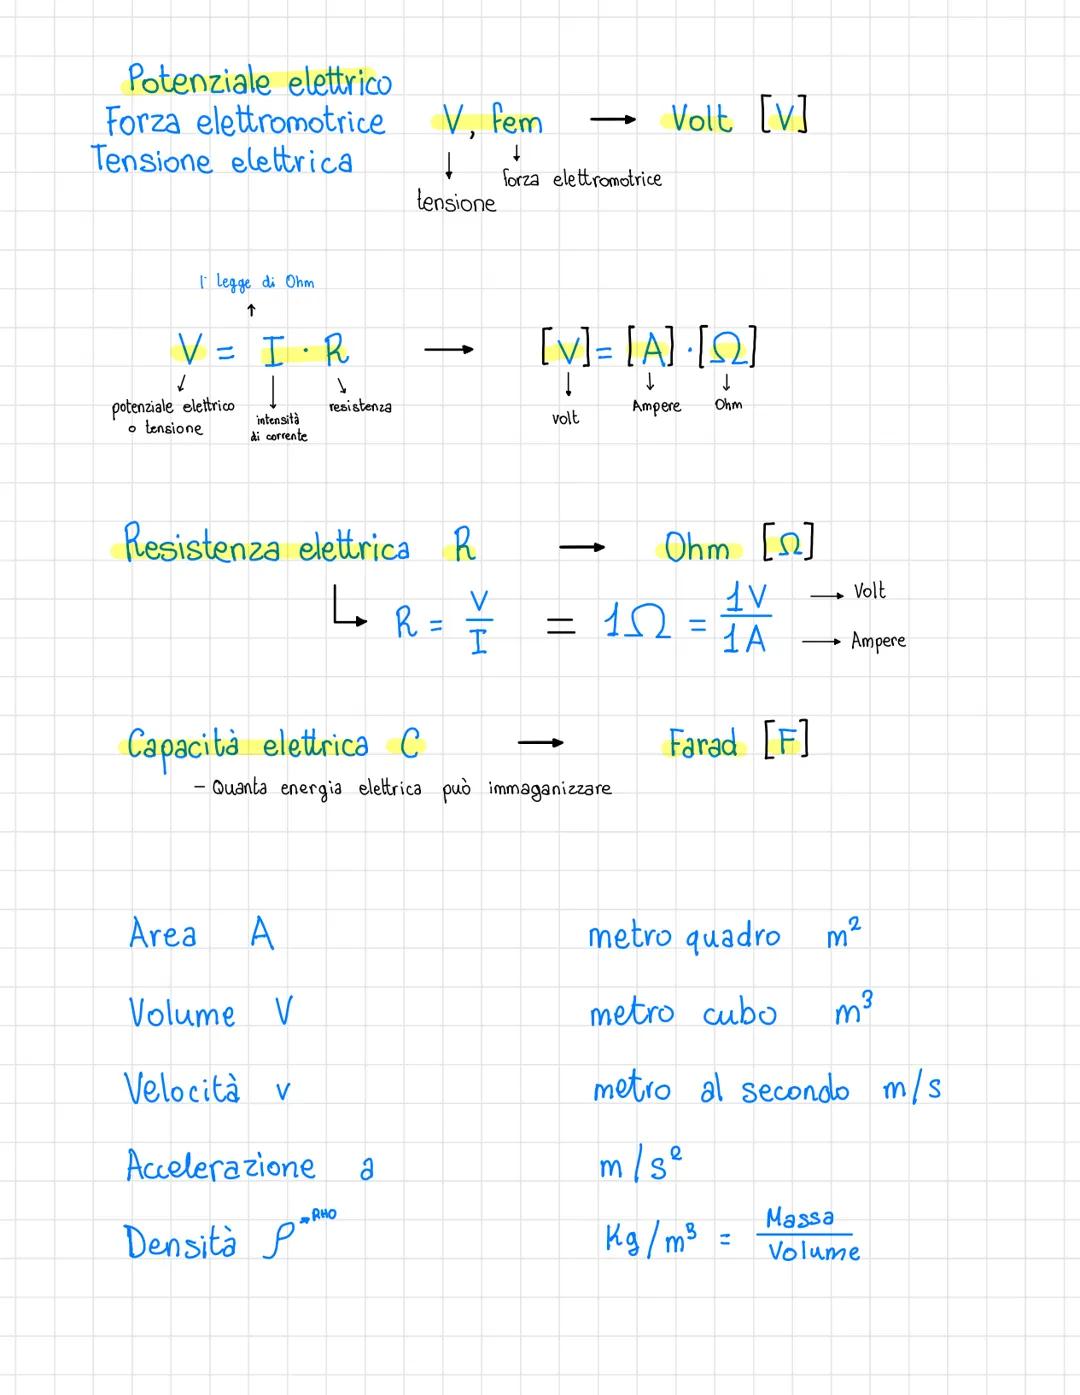 Potenziale elettrico
Forza elettromotrice V, fem → Volt [V]
Tensione elettrica
↓ ↓
forza elettromotrice
tensione
1ª legge di Ohm
↑
V = I · R → [V] = [A] · [Ω]
potenziale elettrico o tensione
intensità di corrente
resistenza
volt
Ampere
Ohm
Resistenza elettrica R → Ohm [Ω]
R = V/I = 1Ω = 1V/1A
→ Volt
→ Ampere
Capacità elettrica C → Farad [F]
- Quanta energia elettrica può immaganizzare
Area A metro quadro m²
Volume V metro cubo m³
Velocità v metro al secondo m/s
Accelerazione a m/s²
Densità ρ → RHO Kg/m³ = Massa/Volume